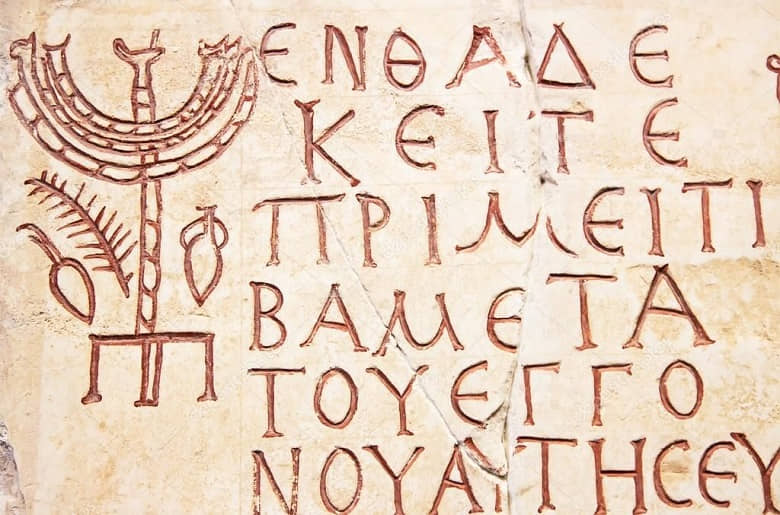 ΕΝΘΑΔΕ
ΚΕΙΤΕ
ΠΡΙΜΕΙΤΙ
ΒΑΜΕΤΑ
ΤΟΥΕΓΓΟ
ΝΟΥΑΥΤΗϹΕΥ